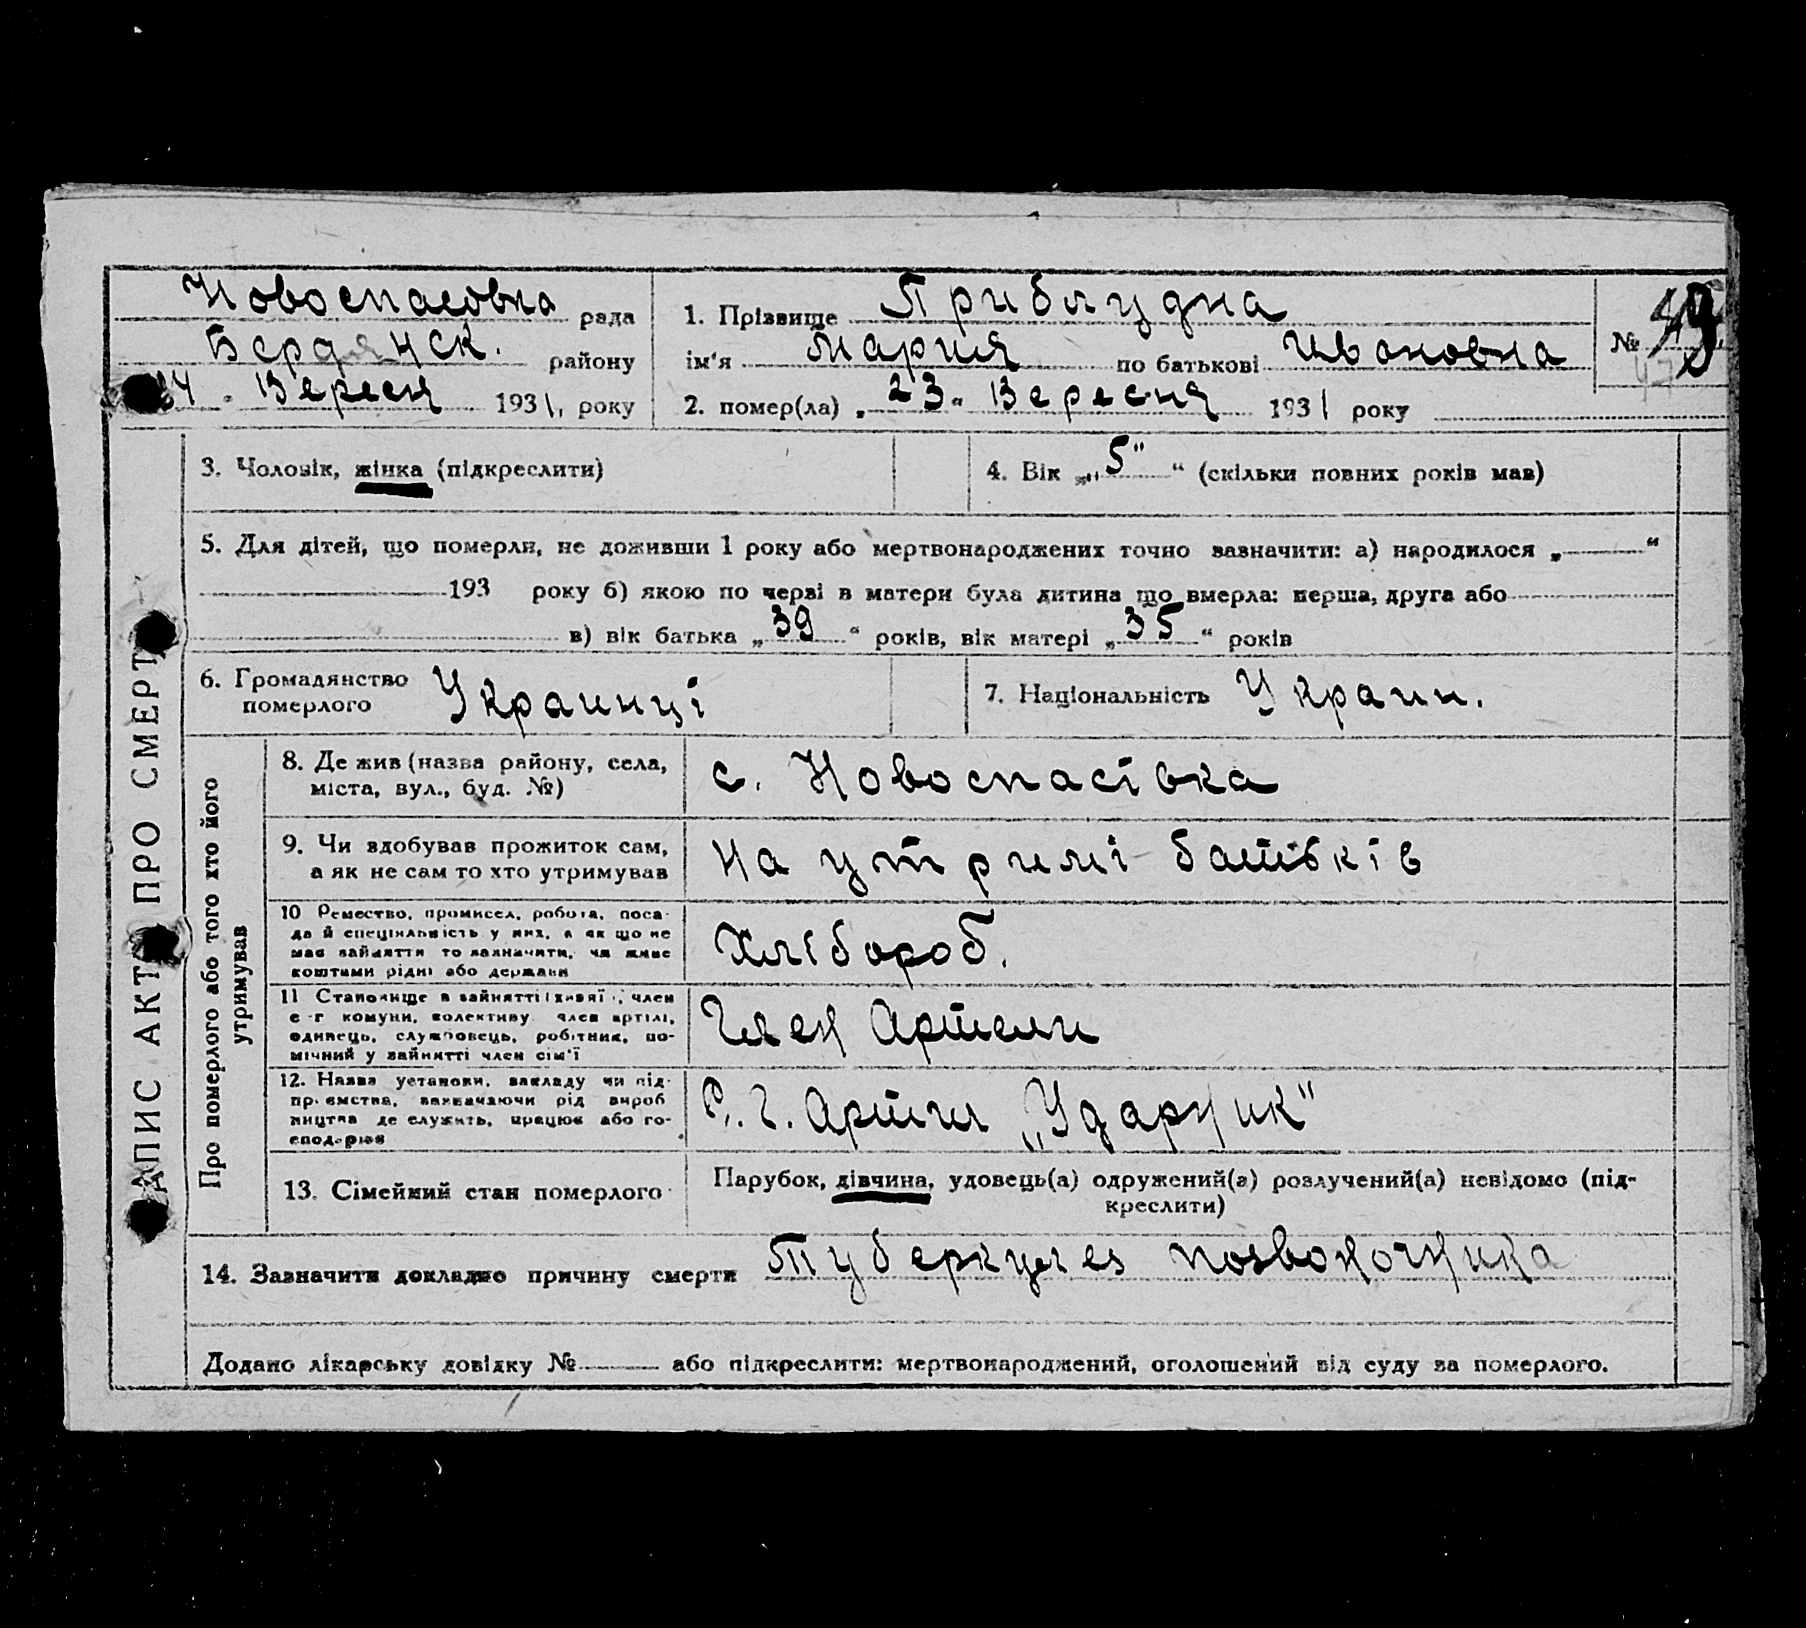 Новоспасовка рада
Бердянск. району
24 " Вересня 1931, року
1. Прізвище Приблудна
ім'я Мария по батькові Ивановна
2. помер(ла) „ 23 " Вересня 1931 року
№
3. Чоловік, жінка (підкреслити)
4. Вік „ 5 " (скільки повних років мав)
5. Для дітей, що померли, не доживши 1 року або мертвонароджених точно зазначити: а) народилося „ "
193 року б) якою по черзі в матери була дитина що вмерла: перша, друга або
в) вік батька „ 39 " років, вік матері „ 35 " років
6. Громадянство
померлого Украинці
7. Національність Украин.
ЗАПИС АКТУ ПРО СМЕРТЬ
Про померлого або того хто його
утримував
8. Де жив (назва району, села,
міста, вул., буд. №)
с. Новоспасівка
9. Чи здобував прожиток сам,
а як не сам то хто утримував
На утримі батьків
10 Ремество, промисел, робота, поса-
да й спеціяльність у них, а як що не
має зайняття то зазначити, чи живе
коштами рідні або держави
Хлібороб.
11 Становище в зайнятті (хазяїн, член
с-г комуни, колективу член артілі,
одинець, службовець, робітник, по-
мічний у зайнятті член сім'ї
Член Артели
12. Назва установи, закладу чи під-
приємства, зазначаючи рід вироб
ництва де служить, працює або го-
сподарює
С. Г. Артіл „Ударник"
13. Сімейний стан померлого
Парубок, дівчина, удовець(а) одружений(а) розлучений(а) невідомо (під-
креслити)
14. Зазначити докладно причину смерти Туберкулез позвоночника
Додано лікарську довідку № або підкреслити: мертвонароджений, оголошений від суду за померлого.